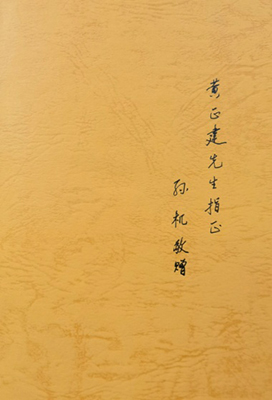 黄正建先生指正
孙机敬赠